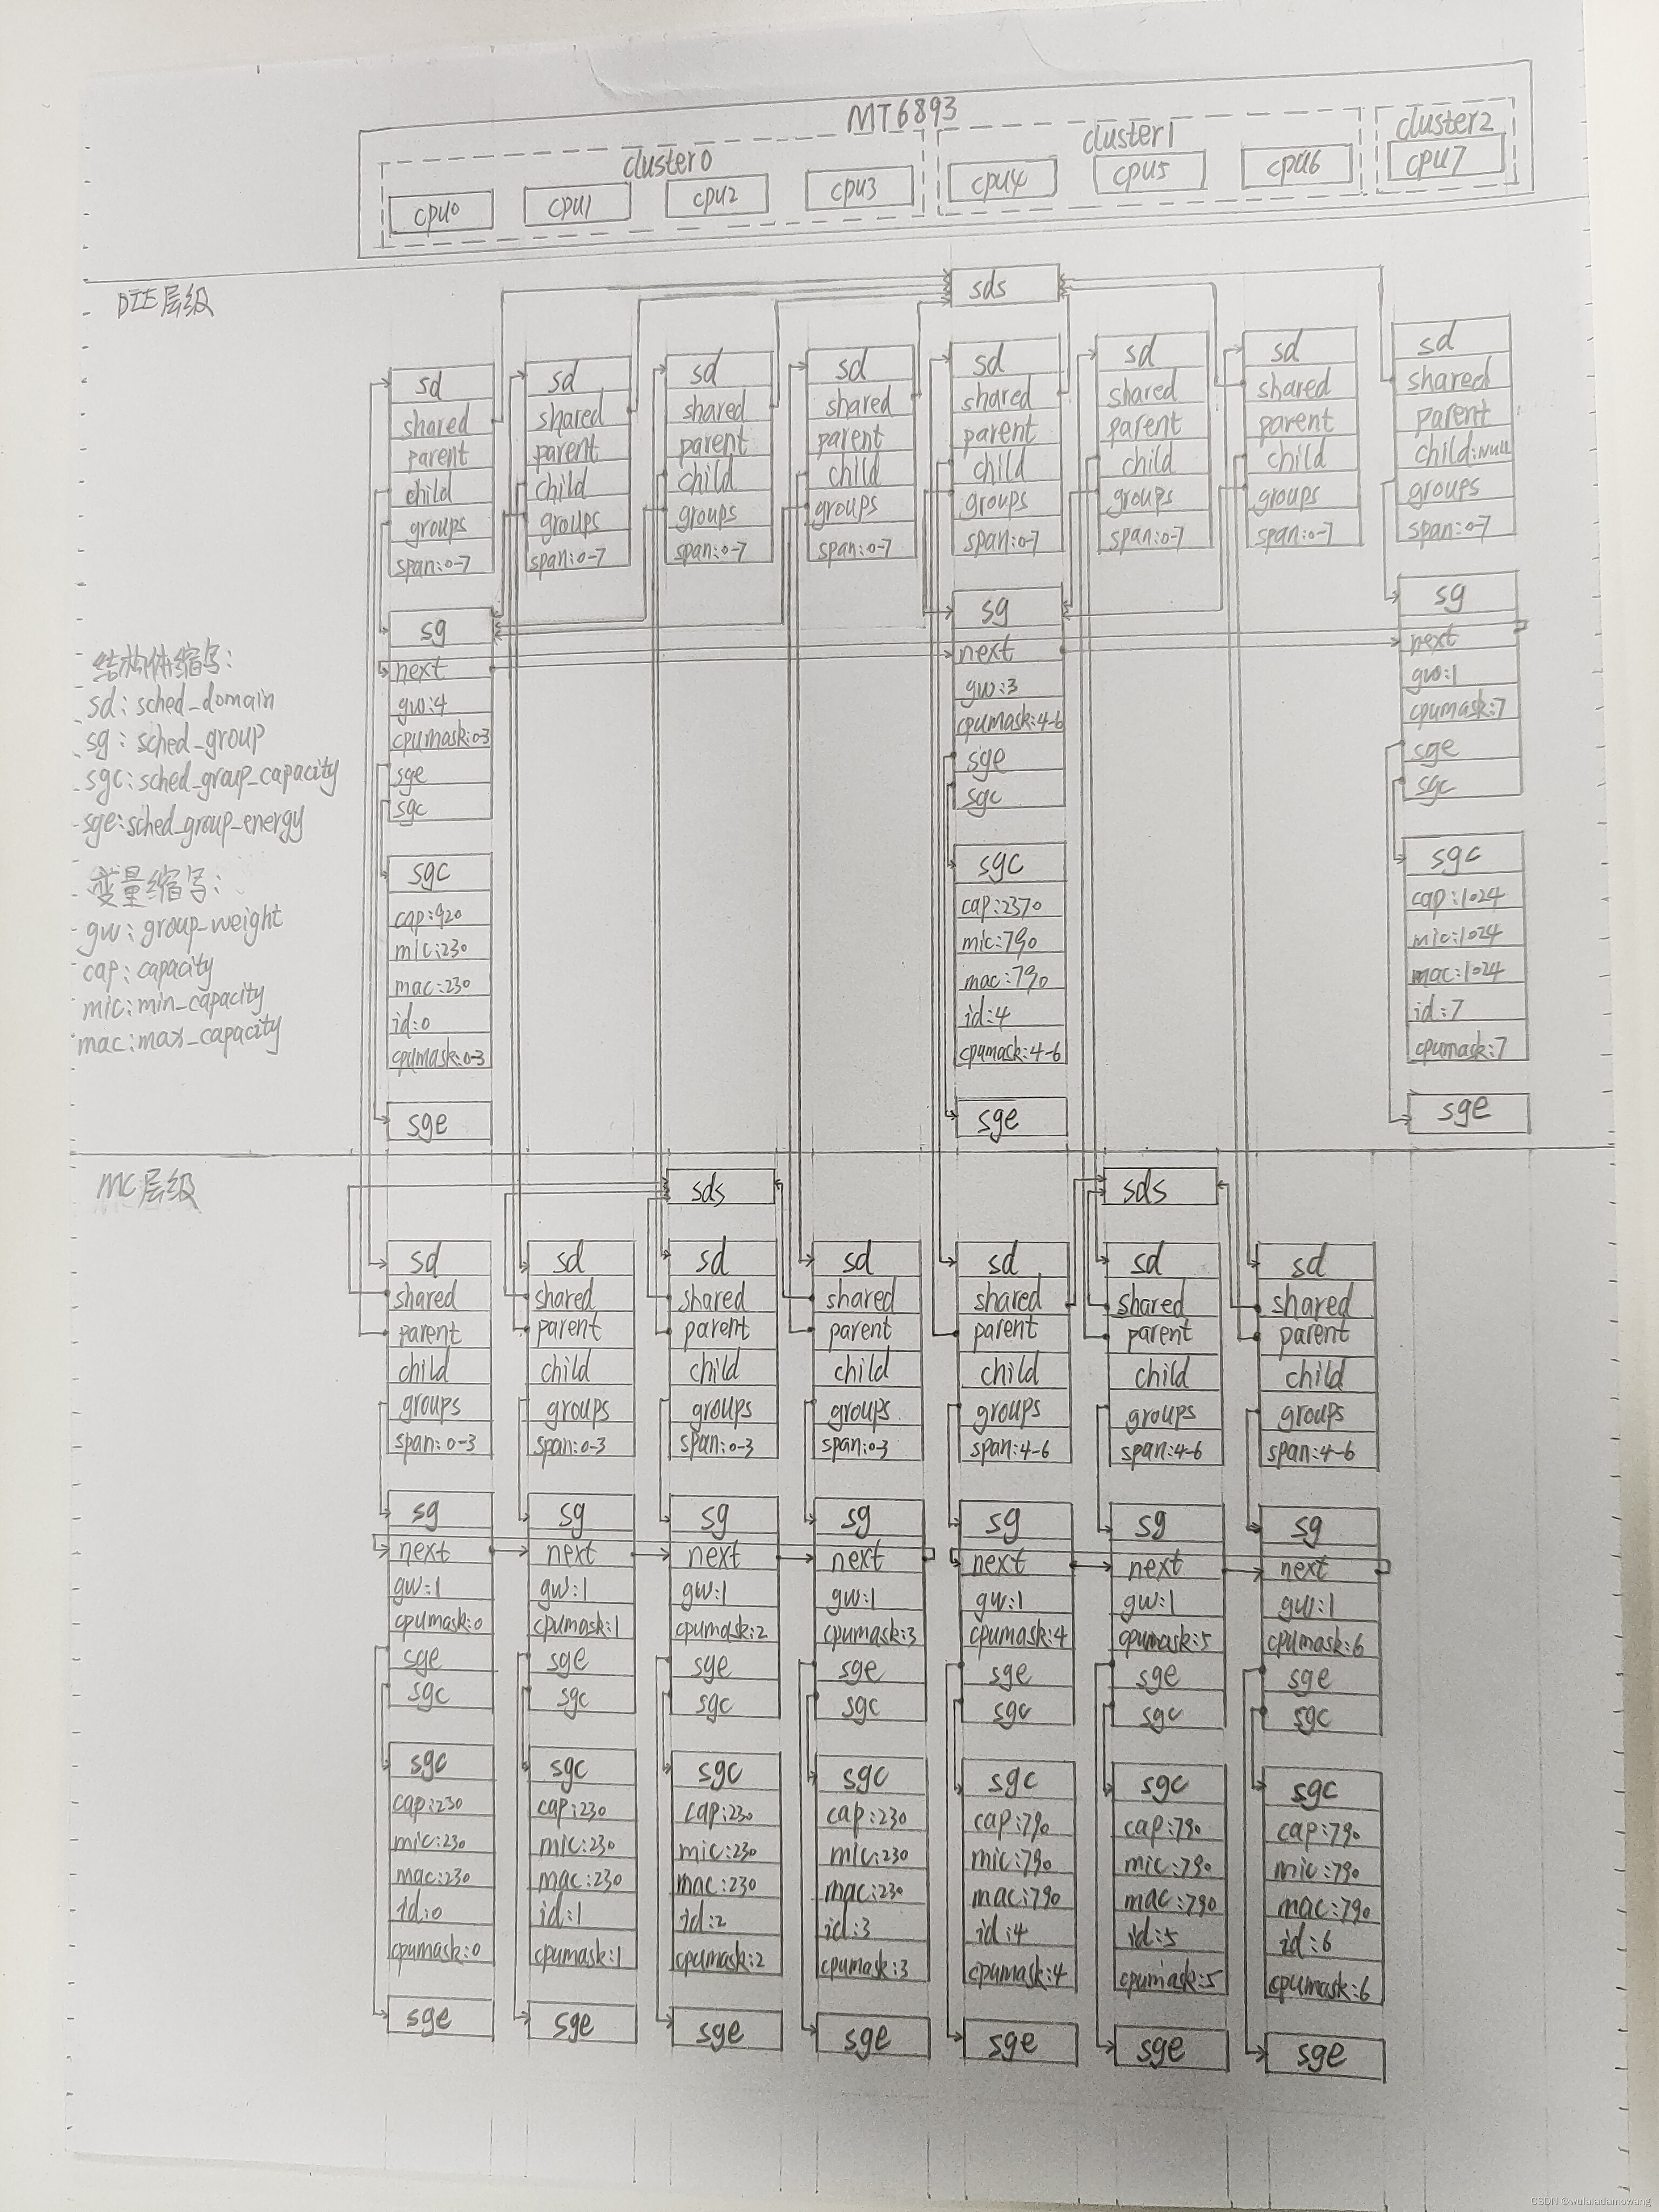 MT6893
cluster0
cluster1
cluster2
cpu0
cpu1
cpu2
cpu3
cpu4
cpu5
cpu6
cpu7
DIE层级
sds
sd
shared
parent
child
groups
span:0-7
sd
shared
parent
child
groups
span:0-7
sd
shared
parent
child
groups
span:0-7
sd
shared
parent
child
groups
span:0-7
sd
shared
parent
child
groups
span:0-7
sd
shared
parent
child
groups
span:0-7
sd
shared
parent
child
groups
span:0-7
sd
shared
parent
child:NULL
groups
span:0-7
结构体缩写:
sd: sched_domain
sg: sched_group
sgc: sched_group_capacity
sge: sched_group_energy
变量缩写:
gw: group_weight
cap: capacity
mic: min_capacity
mac: max_capacity
sg
next
gw:4
cpumask:0-3
sge
sgc
sgc
cap:920
mic:230
mac:230
id:0
cpumask:0-3
sge
sg
next
gw:3
cpumask:4-6
sge
sgc
sgc
cap:2370
mic:790
mac:790
id:4
cpumask:4-6
sge
sg
next
gw:1
cpumask:7
sge
sgc
sgc
cap:1024
mic:1024
mac:1024
id:7
cpumask:7
sge
MC层级
sds
sds
sd
shared
parent
child
groups
span:0-3
sg
next
gw:1
cpumask:0
sge
sgc
sgc
cap:230
mic:230
mac:230
id:0
cpumask:0
sge
sd
shared
parent
child
groups
span:0-3
sg
next
gw:1
cpumask:1
sge
sgc
sgc
cap:230
mic:230
mac:230
id:1
cpumask:1
sge
sd
shared
parent
child
groups
span:0-3
sg
next
gw:1
cpumask:2
sge
sgc
sgc
cap:230
mic:230
mac:230
id:2
cpumask:2
sge
sd
shared
parent
child
groups
span:0-3
sg
next
gw:1
cpumask:3
sge
sgc
sgc
cap:230
mic:230
mac:230
id:3
cpumask:3
sge
sd
shared
parent
child
groups
span:4-6
sg
next
gw:1
cpumask:4
sge
sgc
sgc
cap:790
mic:790
mac:790
id:4
cpumask:4
sge
sd
shared
parent
child
groups
span:4-6
sg
next
gw:1
cpumask:5
sge
sgc
sgc
cap:790
mic:790
mac:790
id:5
cpumask:5
sge
sd
shared
parent
child
groups
span:4-6
sg
next
gw:1
cpumask:6
sge
sgc
sgc
cap:790
mic:790
mac:790
id:6
cpumask:6
sge
CSDN @wulaladamowang